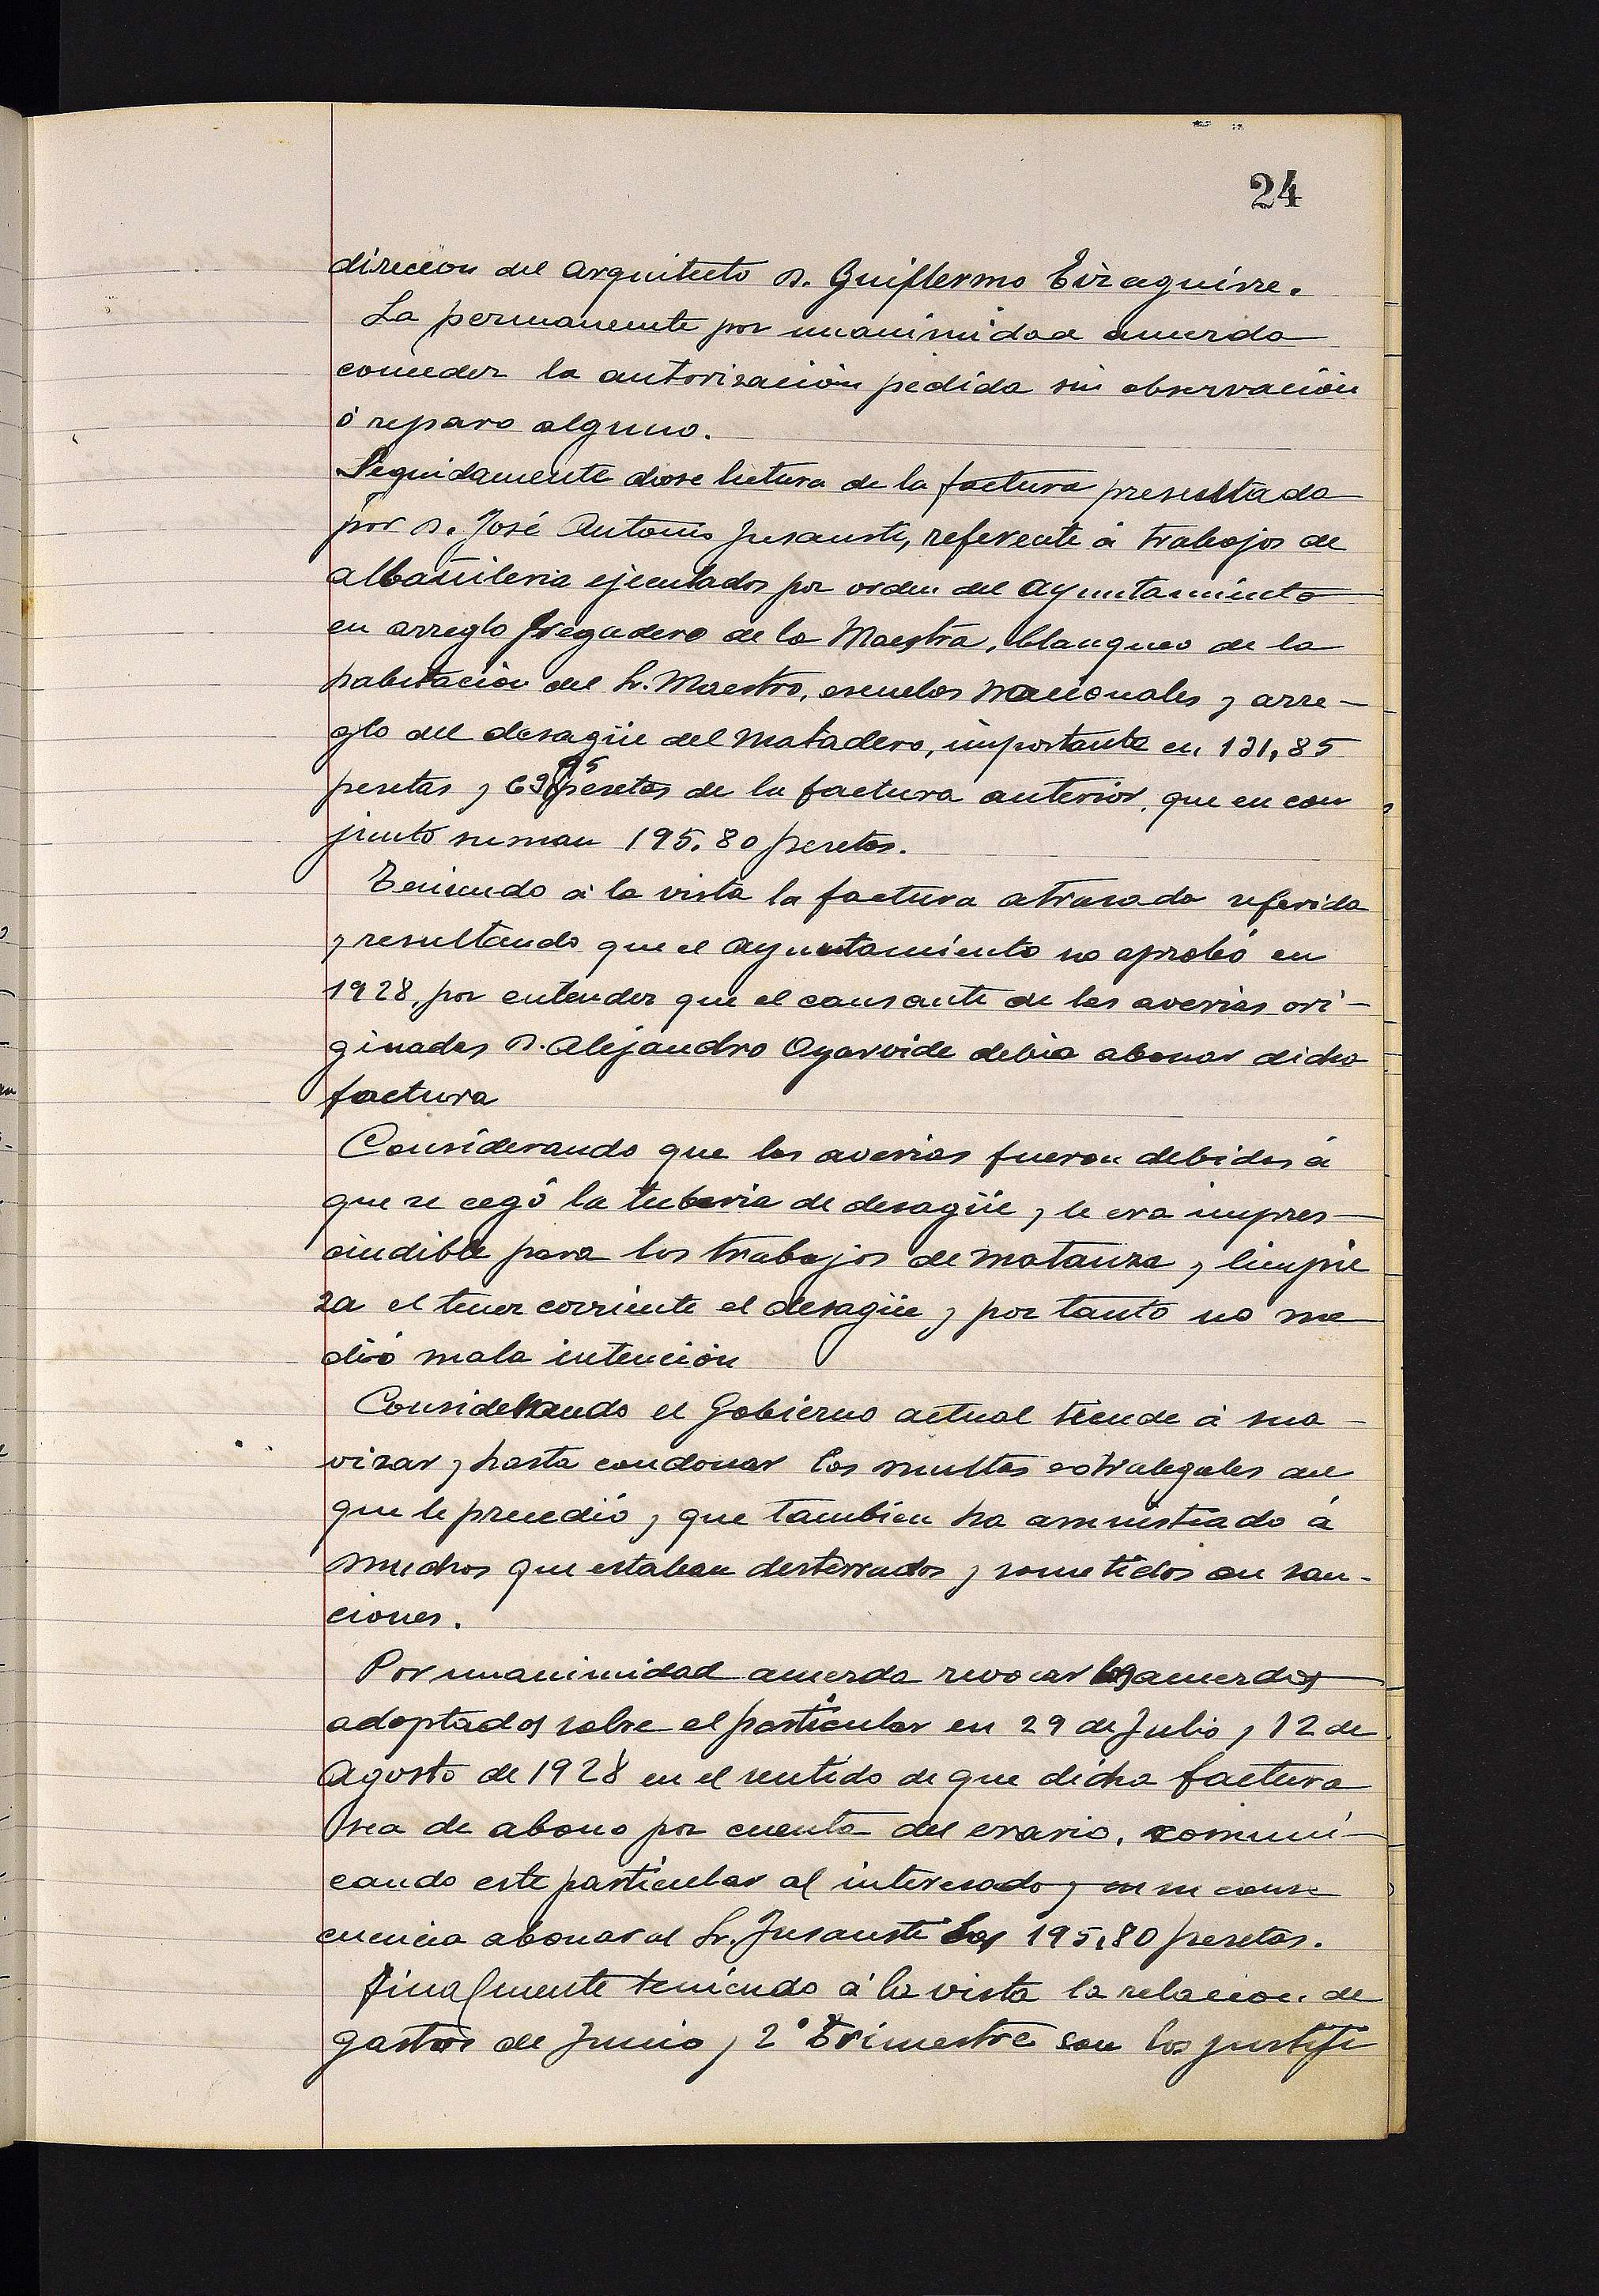 24
direccion del arquitecto D. Guillermo Eizaguirre.
La permanente por unanimidad acuerda
conceder la autorización pedida sin observación
ó reparo alguno.
Seguidamente diose lectura de la factura presentada
por D. José Antonio Jusausti, referente á trabajos de
albañileria ejecutados por orden del Ayuntamiento
en arreglo fregadero de la Maestra, blanqueo de la
habitacion del Sr. Maestro, escuelas nacionales y arre-
glo del desagüe del Matadero, importante en 131,85
pesetas y 63,95 pesetas de la factura anterior, que en con
junto suman 195.80 pesetas.
Teniendo á la vista la factura atrasada referida
y resultando que el Ayuntamiento no aprobó en
1928, por entender que el causante de las averias ori-
ginadas D. Alejandro Oyarvide debia abonar dicha
factura
Considerando que las averias fueron debidas á
que se cegó la tuberia de desagüe y le era impres-
cindible para los trabajos de matanza y limpie
za el tener corriente el desagüe y por tanto no me
dió mala intención
Considerando el Gobierno actual tiende á sua-
vizar y hasta condonar las multas extralegales del
que le precedió y que tambien ha amnistiado á
muchos que estaban desterrados y sometidos an san-
ciones.
Por unanimidad acuerda revocar los acuerdos
adoptados sobre el particular en 29 de Julio y 12 de
Agosto de 1928 en el sentido de que dicha factura
sea de abono por cuenta del erario, comuni-
cando este particular al interesado y en su conse
cuencia abonar al Sr. Jusausti las 195,80 pesetas.
Finalmente teniendo á la vista la relacion de
gastos de Junio y 2º Trimestre con los justifi